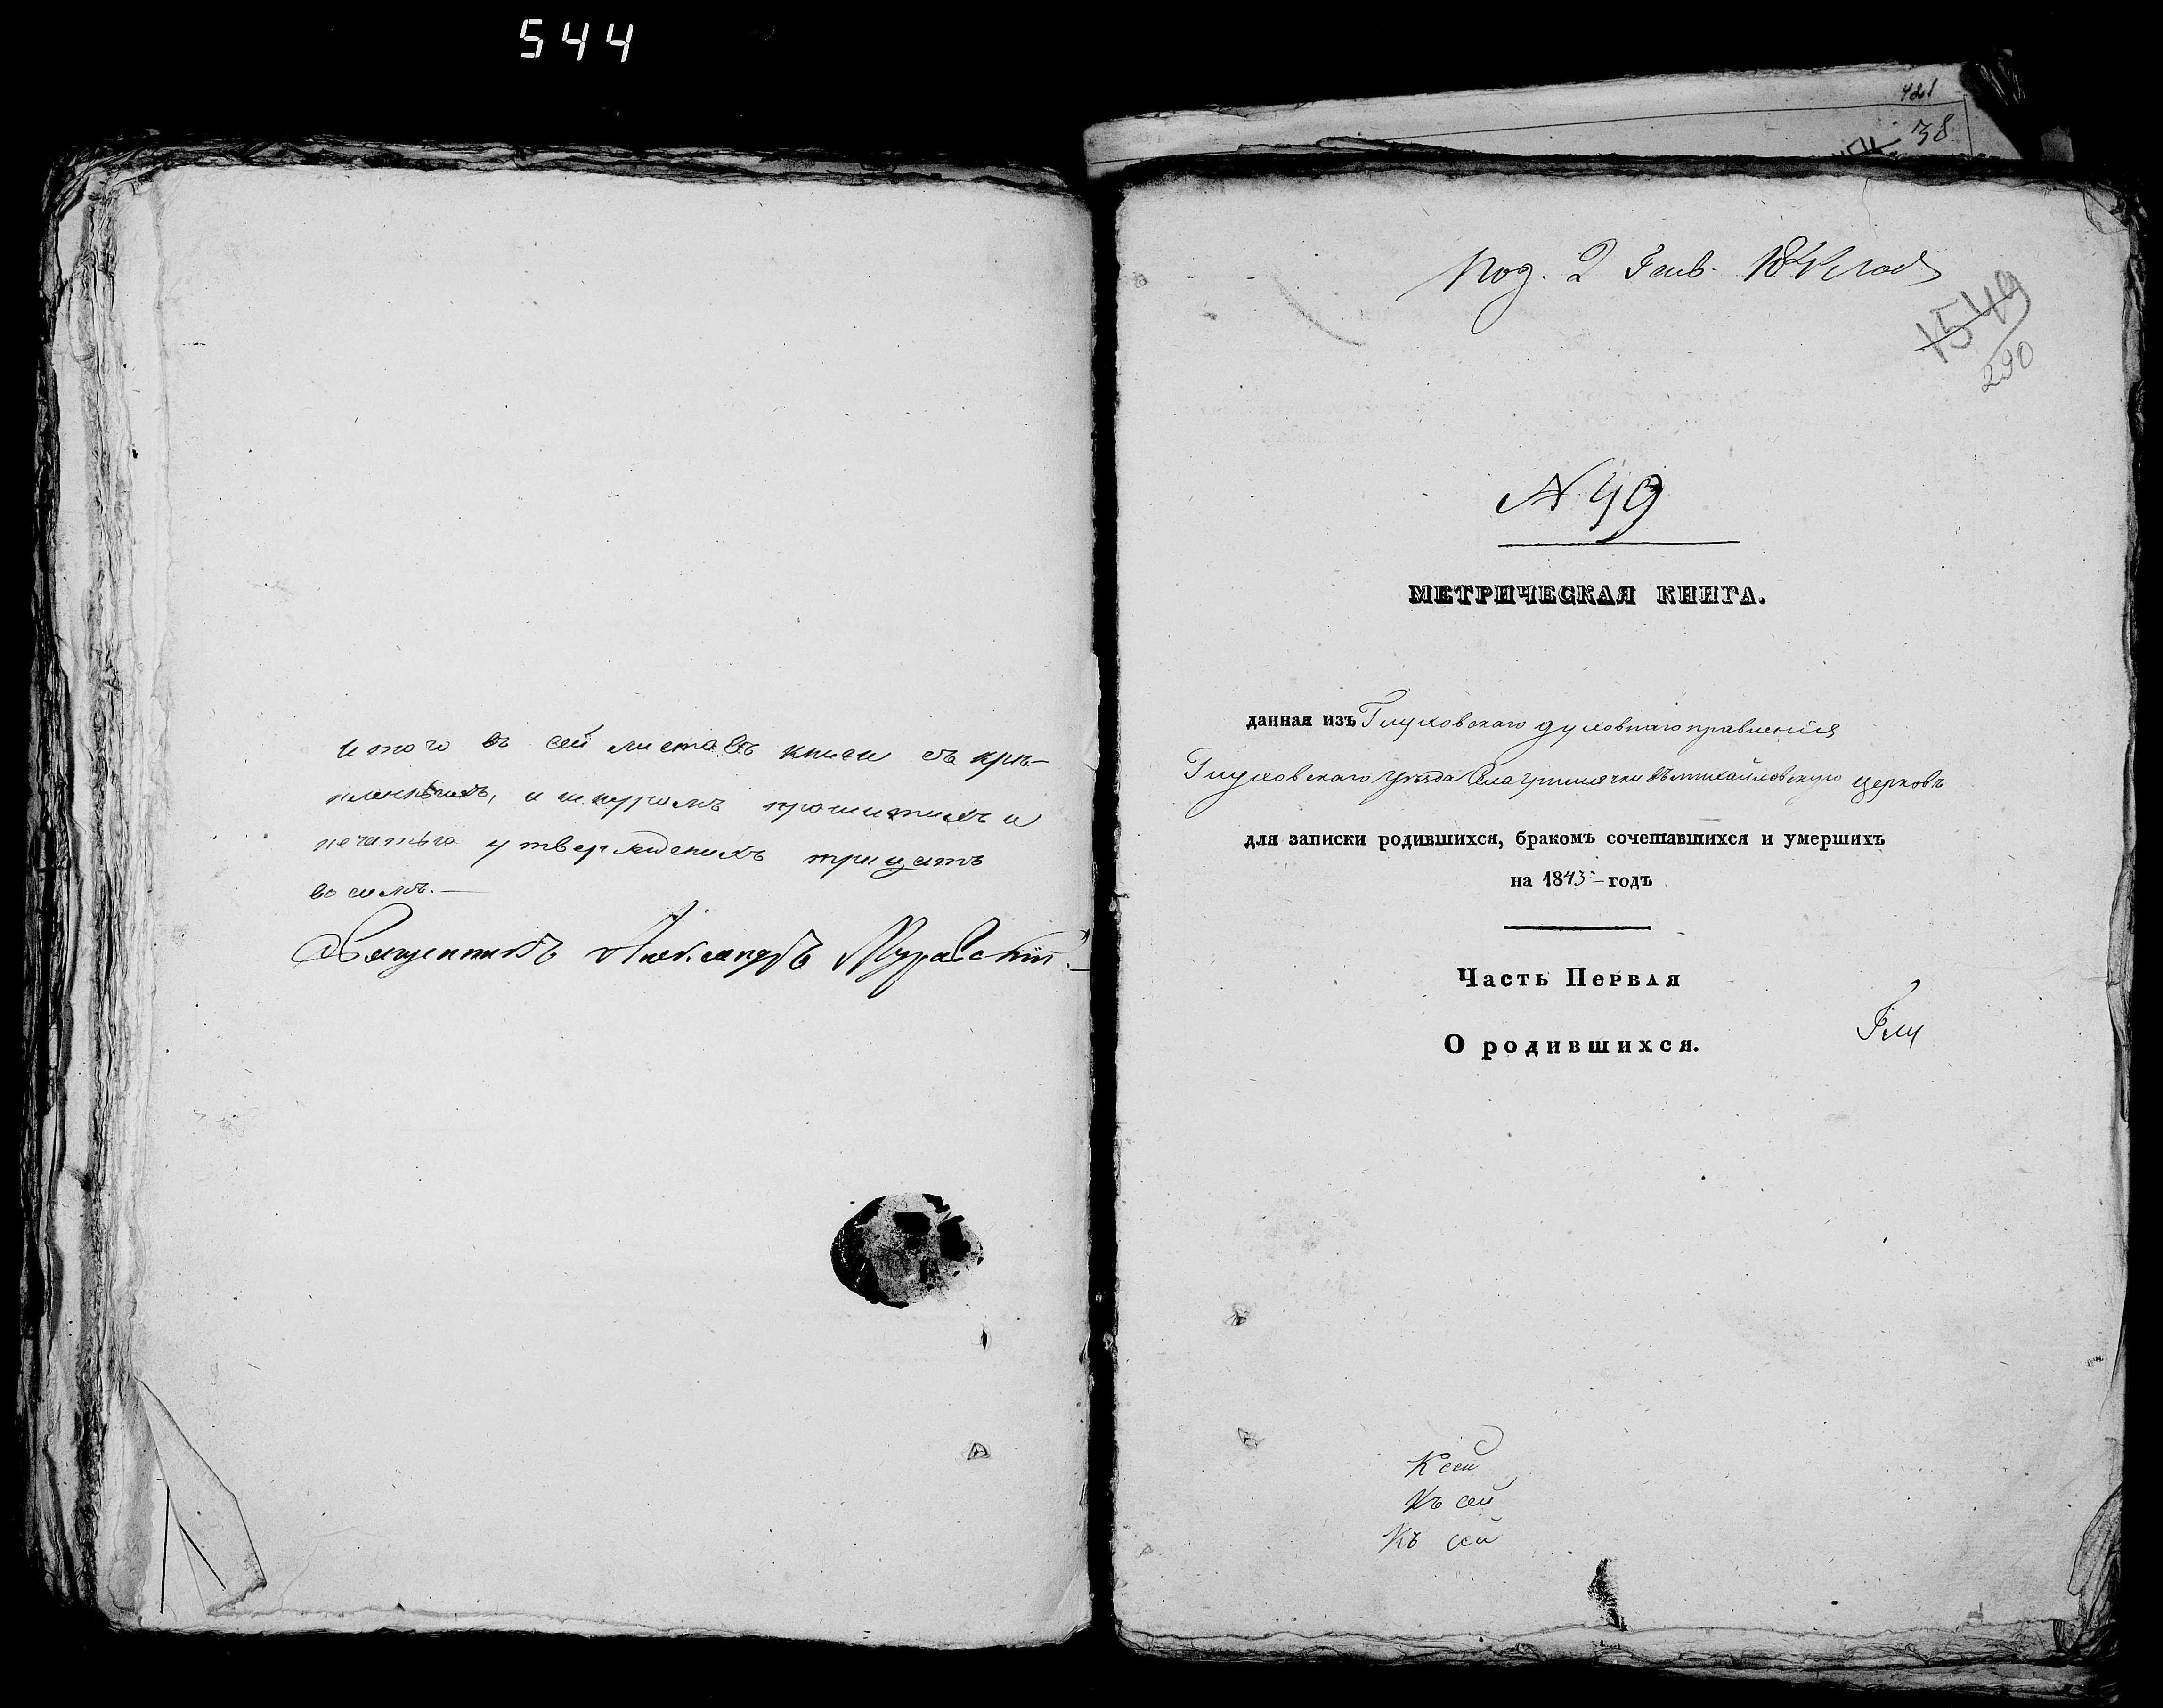 544
421
38
итого въ сей листовъ книги съ крѣ-
пленныхъ, и шнуромъ прошитыхъ и
печатью утвержденихъ трицать
восемъ.—
Священникъ Александръ Муравский.
Под. 2 Генв.
1549
290
N 49
МЕТРИЧЕСКАЯ КНИГА.
данная изъ Глуховскаго духовнаго правленія
Глуховскаго уѣзда Села въ михайловскую церковь
для записки родившихся, бракомъ сочетавшихся и умершихъ
на 1843-годъ
Часть Первая
О родившихся.
Глу
К сей
Къ сей
Къ сей